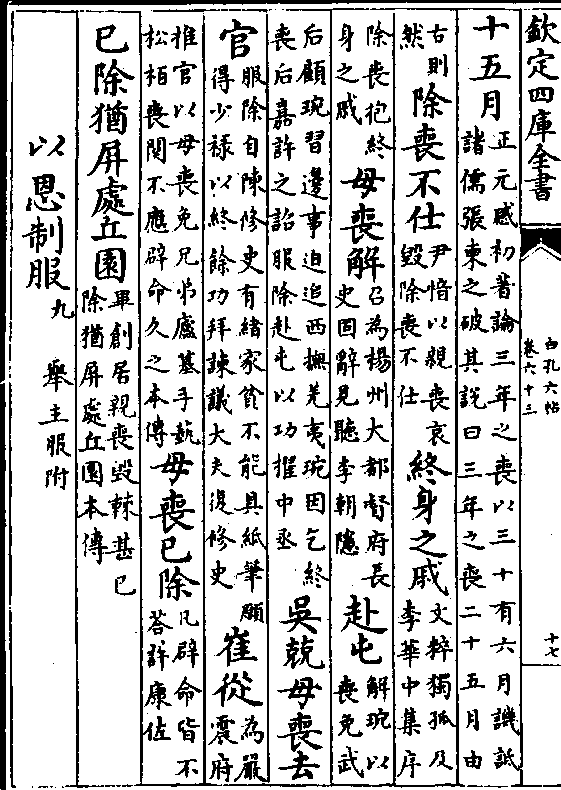 欽定四庫全書
白孔六帖
卷六十三
十七
十五月
正元感初著論三年之喪以三十有六月譏詆
諸儒張柬之破其說曰三年之喪二十五月由
古則
然
除喪不仕
尹愔以親喪哀
毀除喪不仕
終身之戚
文粹獨孤及
李華中集序
除喪抱終
身之戚
母喪解
召為楊州大都督府長
史固辭見聽李朝隱
赴屯
解琬以
喪免武
后顧琬習邊事迫追西撫羌夷琬因乞終
喪后嘉許之詔服除赴屯以功擢中丞
吳兢母喪去
官
服除自陳修史有緒家貧不能具紙筆願
得少祿以終餘功拜諫議大夫復修史
崔從
為嚴
震府
推官以母喪免兄弟廬墓手蓺
松柏喪闋不應辟命久之本傳
母喪已除
凡辟命皆不
荅許康佐
已除猶屏處丘園
畢創居親喪毀棘甚已
除猶屏處丘園本傳
以恩制服九
舉主服附